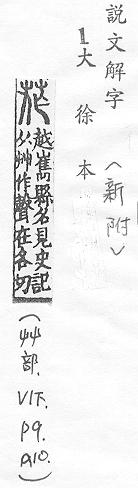 説文解字（新附）
1大徐本
莋
越嶲縣名見史記
从艸作聲在各切
（艸部. VI下. P9. a10.）